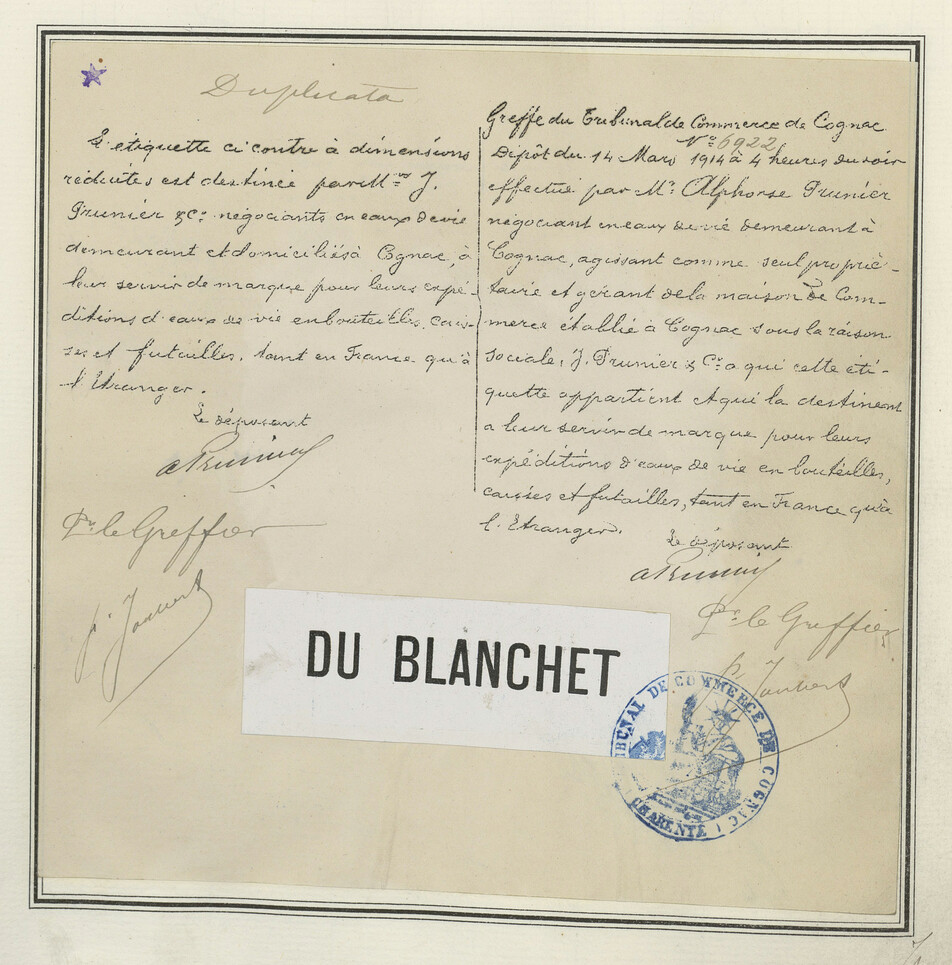 Duplicata
L'étiquette ci contre à dimensions
réduites est destinée par M.rs J.
Prunier & Cie négociants en eaux de vie
demeurant et domiciliés à Cognac, à
leur servir de marque pour leurs expé-
ditions d'eaux de vie en bouteilles, cais-
ses et futailles, tant en France qu'à
l'Etranger.
Le déposant
A Prunier
Pr le Greffier
p. Joubert
Greffe du Tribunal de Commerce de Cognac
No 6922
Dépôt du 14 Mars 1914 à 4 heures du soir
effectué par Mr Alphonse Prunier
négociant en eaux de vie demeurant à
Cognac, agissant comme seul proprié-
taire et gérant de la maison de Com-
merce établie à Cognac sous la raison
sociale, J. Prunier & Cie a qui cette éti-
quette appartient et qui la destinent
a leur servir de marque pour leurs
expéditions d'eaux de vie en bouteilles,
caisses et futailles, tant en France qu'à
l'Etranger.
Le déposant
A Prunier
Pr le Greffier
p. Joubert
DU BLANCHET
TRIBUNAL DE COMMERCE DE COGNAC
(CHARENTE)